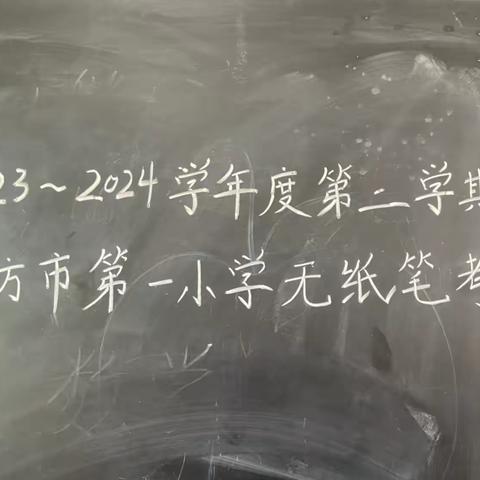 23～2024学年度第二学期
方市第一小学无纸笔考